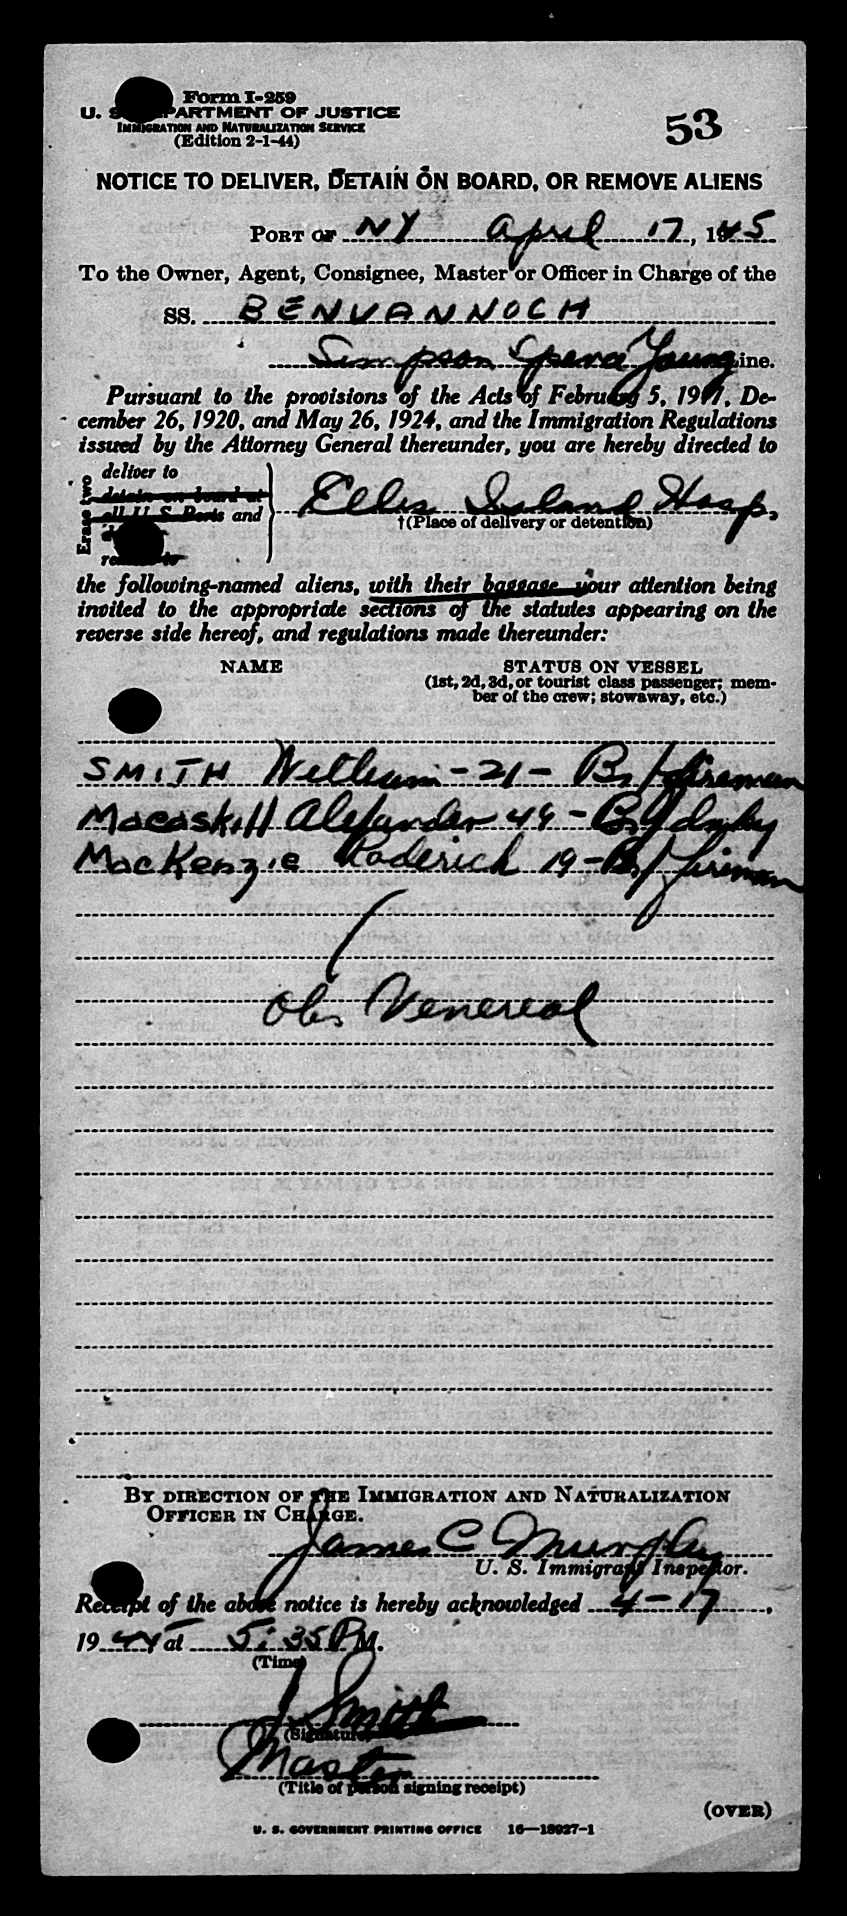 Form I-259
U. S. DEPARTMENT OF JUSTICE
IMMIGRATION AND NATURALIZATION SERVICE
(Edition 2-1-44)
53
NOTICE TO DELIVER, DETAIN ON BOARD, OR REMOVE ALIENS
PORT OF NY April 17, 1945
To the Owner, Agent, Consignee, Master or Officer in Charge of the
SS. BENVANNOCH
Simpson Spence Young Line.
Pursuant to the provisions of the Acts of February 5, 1917, De-
cember 26, 1920, and May 26, 1924, and the Immigration Regulations
issued by the Attorney General thereunder, you are hereby directed to
Erase two
deliver to
detain on board at
all U S Ports and
Ellis Island Hosp.
†(Place of delivery or detention)
remove to
the following-named aliens, with their baggage your attention being
invited to the appropriate sections of the statutes appearing on the
reverse side hereof, and regulations made thereunder:
NAME STATUS ON VESSEL
(1st, 2d, 3d, or tourist class passenger; mem-
ber of the crew; stowaway, etc.)
SMITH William - 21 - Br/fireman
Macaskill Alexander 49 - Br/
MacKenzie Roderick 19 - Br/fireman
Obs Venereal
BY DIRECTION OF THE IMMIGRATION AND NATURALIZATION
OFFICER IN CHARGE.
James C Murphy
U. S. Immigrant Inspector.
Receipt of the above notice is hereby acknowledged 4-17,
1945 at 5:35 P M.
(Time)
J Smith
(Signature)
Master
(Title of person signing receipt)
(OVER)
U. S. GOVERNMENT PRINTING OFFICE 16—18927-1